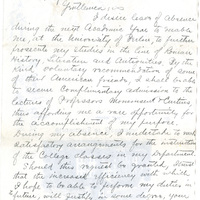 Gentlemen:
I desire leave of absence
during the next Academic Year to enable
me, at the University of Berlin, to further
prosecute my studies in the line of Roman
History, Literature and Antiquities. By the
kind, voluntary recommendation of some
of their American friends, I shall be able
to secure complimentary admission to the
lectures of Professors Mommsen & Curtius,
thus affording me a rare opportunity for
the accomplishment of my purpose.
During my absence, I undertake to make
satisfactory arrangements for the instruction
of the College classes in my department.
Should this request be granted, I trust
that the increased efficiency with which
I hope to be able to perform my duties in
future, will justify, in some degree, your